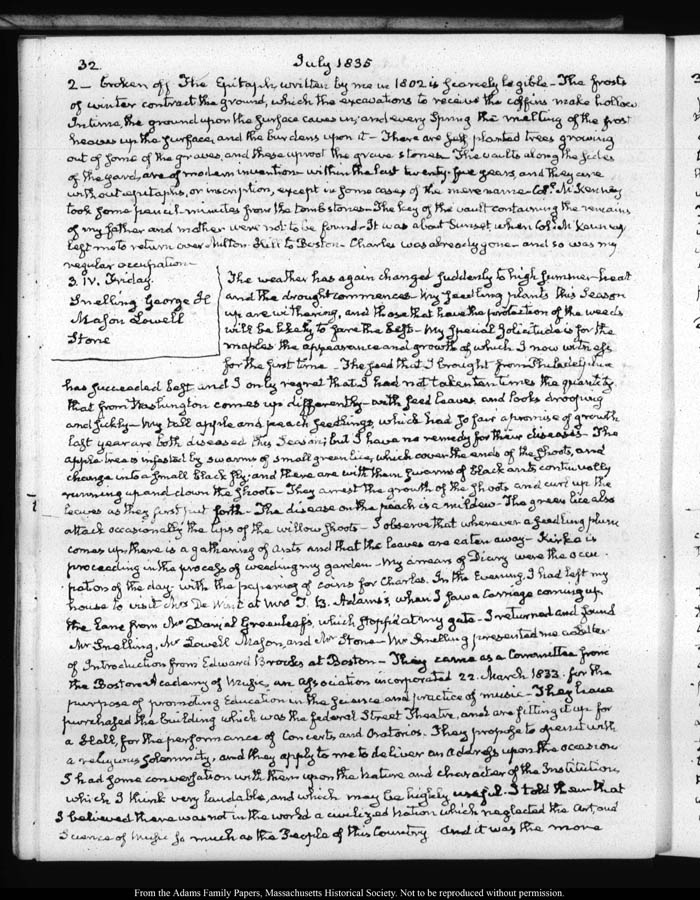 32.
July 1835
2 — broken off The Epitaph, written by me in 1802 is scarcely legible — The frosts
of winter contract the ground, which the excavations to receive the coffins make hollow
In time, the ground upon the surface caves in; and every Spring the melting of the frost
heaves up the surface, and the burdens upon it — There are self planted trees growing
out of some of the graves, and these uproot the grave stones. The vaults along the sides
of the yard, are of modern invention within the last twenty-five years, and they are
without epitaphs, or inscription, except in some cases of the mere name — Col. McKenney
took some pencil minutes from the tombstones — The key of the vault containing the remains
of my father and mother were not to be found — It was about Sunset when Col. McKenney
left me to return over Milton Hill to Boston — Charles was already gone — and so was my
regular occupation —
3. IV. Friday.
Snelling George H
Mason Lowell
Stone
The weather has again changed suddenly to high summer-heat
and the drought commences — My seedling plants this Season
up are withering, and those that have the protection of the weeds
will be likely to fare the best — My special solicitude is for the
maples the appearance and growth of which I now witness
for the first time. The seed that I brought from Philadelphia
has succeeded best and I only regret that I had not taken ten times the quantity.
that from Washington comes up differently — with seed leaves and looks drooping
and sickly — My tall apple and peach seedlings, which had so fair a promise of growth
last year are both diseased this Season; but I have no remedy for their diseases — The
apple tree is infested by swarms of small green lice, which cover the ends of the shoots, and
change into a small black fly; and there are with them swarms of black ants continually
running up and down the shoots — They arrest the growth of the shoots and curl up the
leaves as they first put forth — The disease on the peach is a mildew — The green lice also
attack occasionally the tips of the willow shoots — I observe that whenever a seedling plum
comes up, there is a gathering of ants and that the leaves are eaten away — Kirke is
proceeding in the process of weeding my garden — My arrears of Diary were the occu-
pation of the day, with the papering of coins for Charles. In the Evening, I had left my
house to visit Mrs De Wint at Mrs T. B. Adams's, when I saw a Carriage coming up
the Lane from Mr Daniel Greenleaf's, which stopp'd at my gate — I returned and found
Mr Snelling, Mr Lowell Mason, and Mr Stone — Mr Snelling presented me a letter
of Introduction from Edward Brooks at Boston — They came as a Committee from
the Boston Academy of Music, an association incorporated 22. March 1833. for the
purpose of promoting Education in the science and practice of music — They have
purchased the building which was the federal Street Theatre, and are fitting it up for
a Hall, for the performance of Concerts and Oratorios. They propose to open it with
a religious solemnity, and they apply to me to deliver an address upon the occasion
I had some conversation with them upon the nature and character of the Institution,
which I think very laudable, and which may be highly useful. I told them that
I believed there was not in the world a civilized Nation which neglected the Art and
Science of Music so much as the People of this Country and it was the more
From the Adams Family Papers, Massachusetts Historical Society. Not to be reproduced without permission.